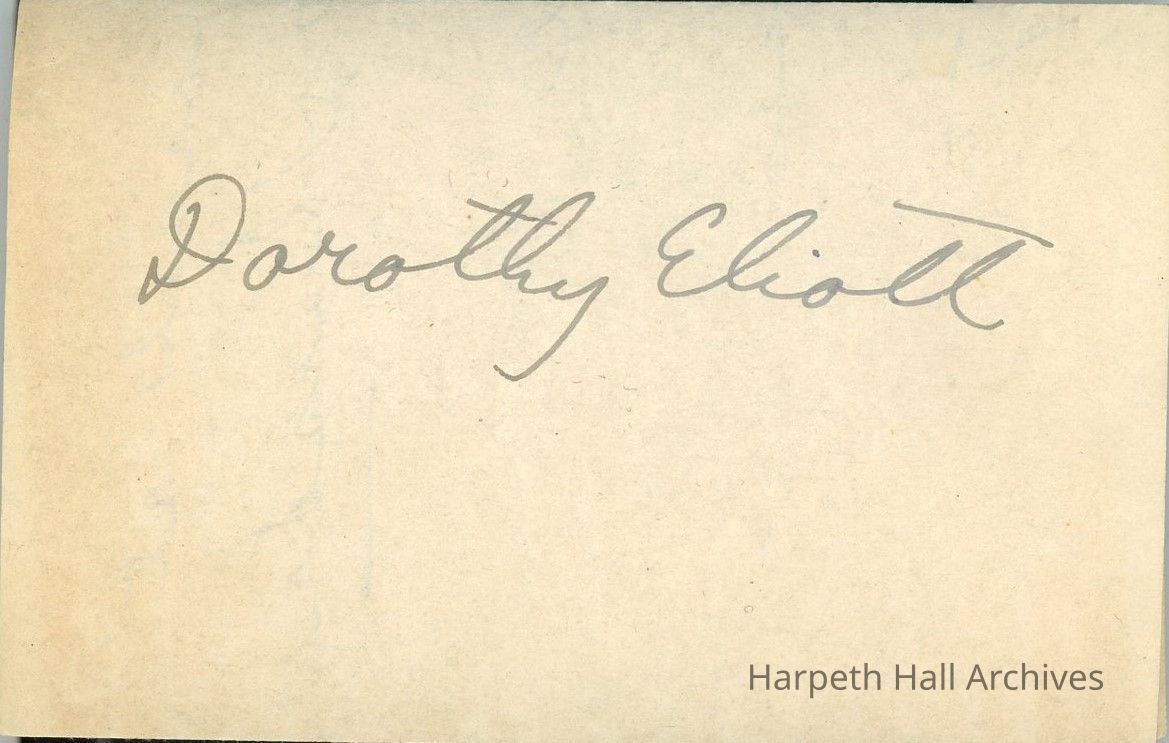 Dorothy Eliott
Harpeth Hall Archives